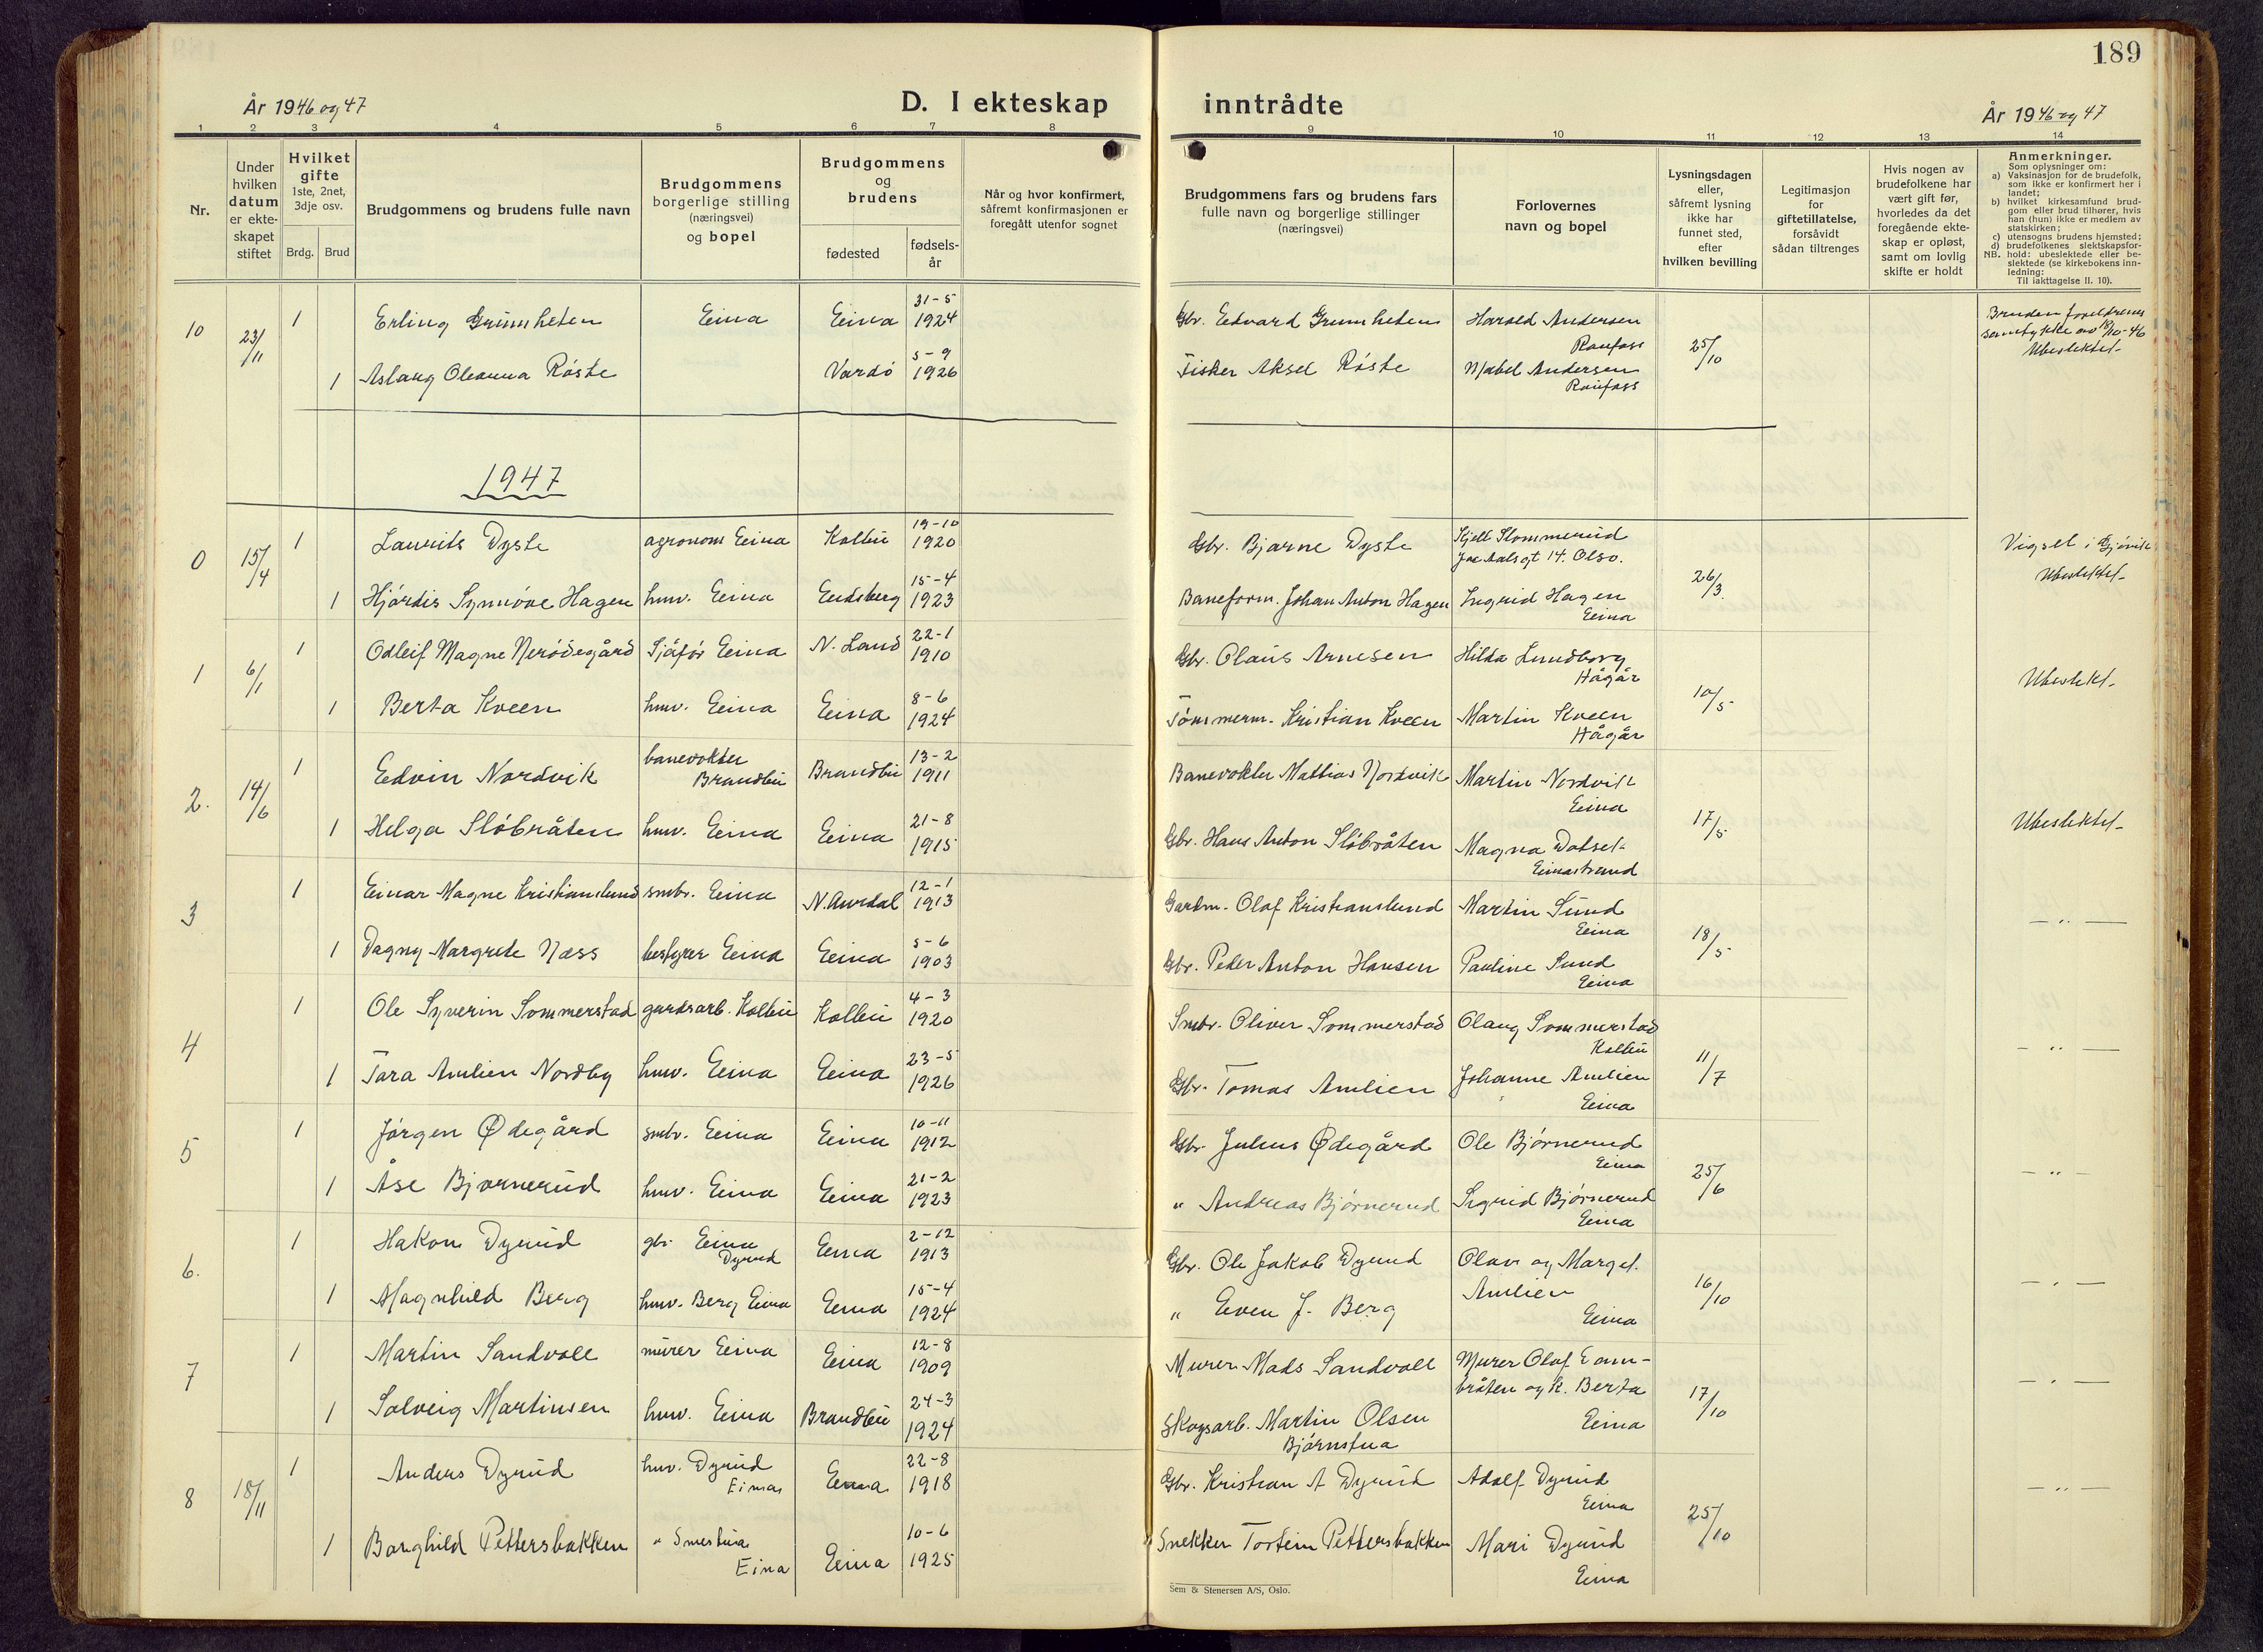 189
År 1946 og 47
D. I ekteskap inntrådte
År 1946 og 47
1 2 3 4 5 6 7 8 9 10 11 12 13 14
Nr.
Under hvilken datum er ekte-skapet stiftet
Hvilket gifte
1ste, 2net, 3dje osv.
Brdg. Brud
Brudgommens og brudens fulle navn
Brudgommens borgerlige stilling (næringsvei) og bopel
Brudgommens og brudens
fødested
fødsels-år
Når og hvor konfirmert, såfremt konfirmasjonen er foregått utenfor sognet
Brudgommens fars og brudens fars fulle navn og borgerlige stillinger (næringsvei)
Forlovernes navn og bopel
Lysningsdagen eller, såfremt lysning ikke har funnet sted, efter hvilken bevilling
Legitimasjon for giftetillatelse, forsåvidt sådan tiltrenges
Hvis nogen av brudefolkene har vært gift før, hvorledes da det foregående ekte-skap er opløst, samt om lovlig skifte er holdt
Anmerkninger.
Som oplysninger om:
a) Vaksinasjon for de brudefolk, som ikke er konfirmert her i landet;
b) hvilket kirkesamfund brud-gom eller brud tilhører, hvis han (hun) ikke er medlem av statskirken;
c) utensogns brudens hjemsted;
d) brudefolkenes slektskapsfor-hold: ubeslektede eller be-slektede (se kirkebokens inn-ledning:
NB.
Til iakttagelse II. 10).
10 23/11 1 Erling Grimsheten Eina Eina 31-5 1924 Gbr. Edvard Grimsheten Harald Andersen Raufoss 25/10 Bruden foreldrenes samtykke av 18/10-46 Ubeslektet
1 Aslaug Oleanna Röste Vardö 5-9 1926 Fisker Aksel Röste Mabel Andersen Raufoss
1947
0 15/4 1 Laurits Dyste agronom Eina Kolbu 19-10 1920 Gbr. Bjarne Dyste Kjell Slommerud Jac Aalsgt 14. Olso. 26/3. Vigsel i Gjövik Ubeslektet
1 Hjördis Synnöve Hagen huv. Eina Eidsberg 15-4 1923 Baneform. Johan Anton Hagen Ingrid Hagen Eina
1 6/1 1 Odleif Magne Nerödegård Sjåfør Eina N. Land 22-1 1910 Gbr. Olaus Arnesen Hilda Lundborg Hågår 10/5 Ubeslekt.
1 Berta Kveen huv. Eina Eina 8-6 1924 Tömmerm. Kristian Kveen Martin Kveen Hågår
2. 14/6 1 Edvin Nordvik banevokter Brandbu Brandbu 13-2 1911 Banevokter Mattias Nordvik Martin Nordvik Eina 17/5 Ubeslektet
1 Helga Slöbråten huv. Eina Eina 21-8 1915 Gbr. Hans Anton Slöbråten Magna Dotset Einastrand
3 1 Einar Magne Kristianslund smbr. Eina N. Aurdal 12-1 1913 Gardm. Olaf Kristianslund Martin Sund Eina 18/5 — „ —
1 Dagny Margrete Næss bestyrer Eina Eina 5-6 1903 Gbr. Peder Anton Hansen Pauline Sund Eina
4 1 Ole Syverin Sommerstad gardsarb. Kolbu Kolbu 4-3 1920 Smbr. Oliver Sommerstad Olaug Sommerstad Kolbu 11/7 — „ —
1 Tora Amlien Nordby huv. Eina Eina 23-5 1926 Gbr. Tomas Amlien Johanne Amlien Eina
5 1 Jörgen Ødegård smbr. Eina Eina 10-11 1912 Gbr. Julius Ødegård Ole Björnerud Eina 25/6 — „ —
1 Åse Björnerud huv. Eina Eina 21-2 1923 „ Andreas Björnerud Sigrid Björnerud Eina
6. 1 Hakon Dyrud gbr Eina Dyrud Eina 2-12 1913 Gbr. Ole Jakob Dyrud Olav og Marget. Amlien Eina 16/10 — „ —
1 Magnhild Berg huv. Berg Eina Eina 15-4 1924 „ Even J. Berg
7 1 Martin Sandvoll murer Eina Eina 12-8 1909 Murer Mads Sandvoll Murer Olaf Dam-bråten og K. Berta Eina 17/10 — „ —
1 Solveig Martinsen huv. Eina Brandbu 24-3 1924 Skogsarb. Martin Olsen Björnstua
8 18/11 1 Anders Dyrud huv. Dyrud Eina Eina 22-8 1918 Gbr. Kristian A Dyrud Adolf Dyrud Eina 25/10 — „ —
1 Borghild Pettersbakken „ Smestua Eina Eina 10-6 1925 Snekker Tostein Pettersbakken Mari Dyrud Eina
Sem & Stenersen A/S, Oslo.